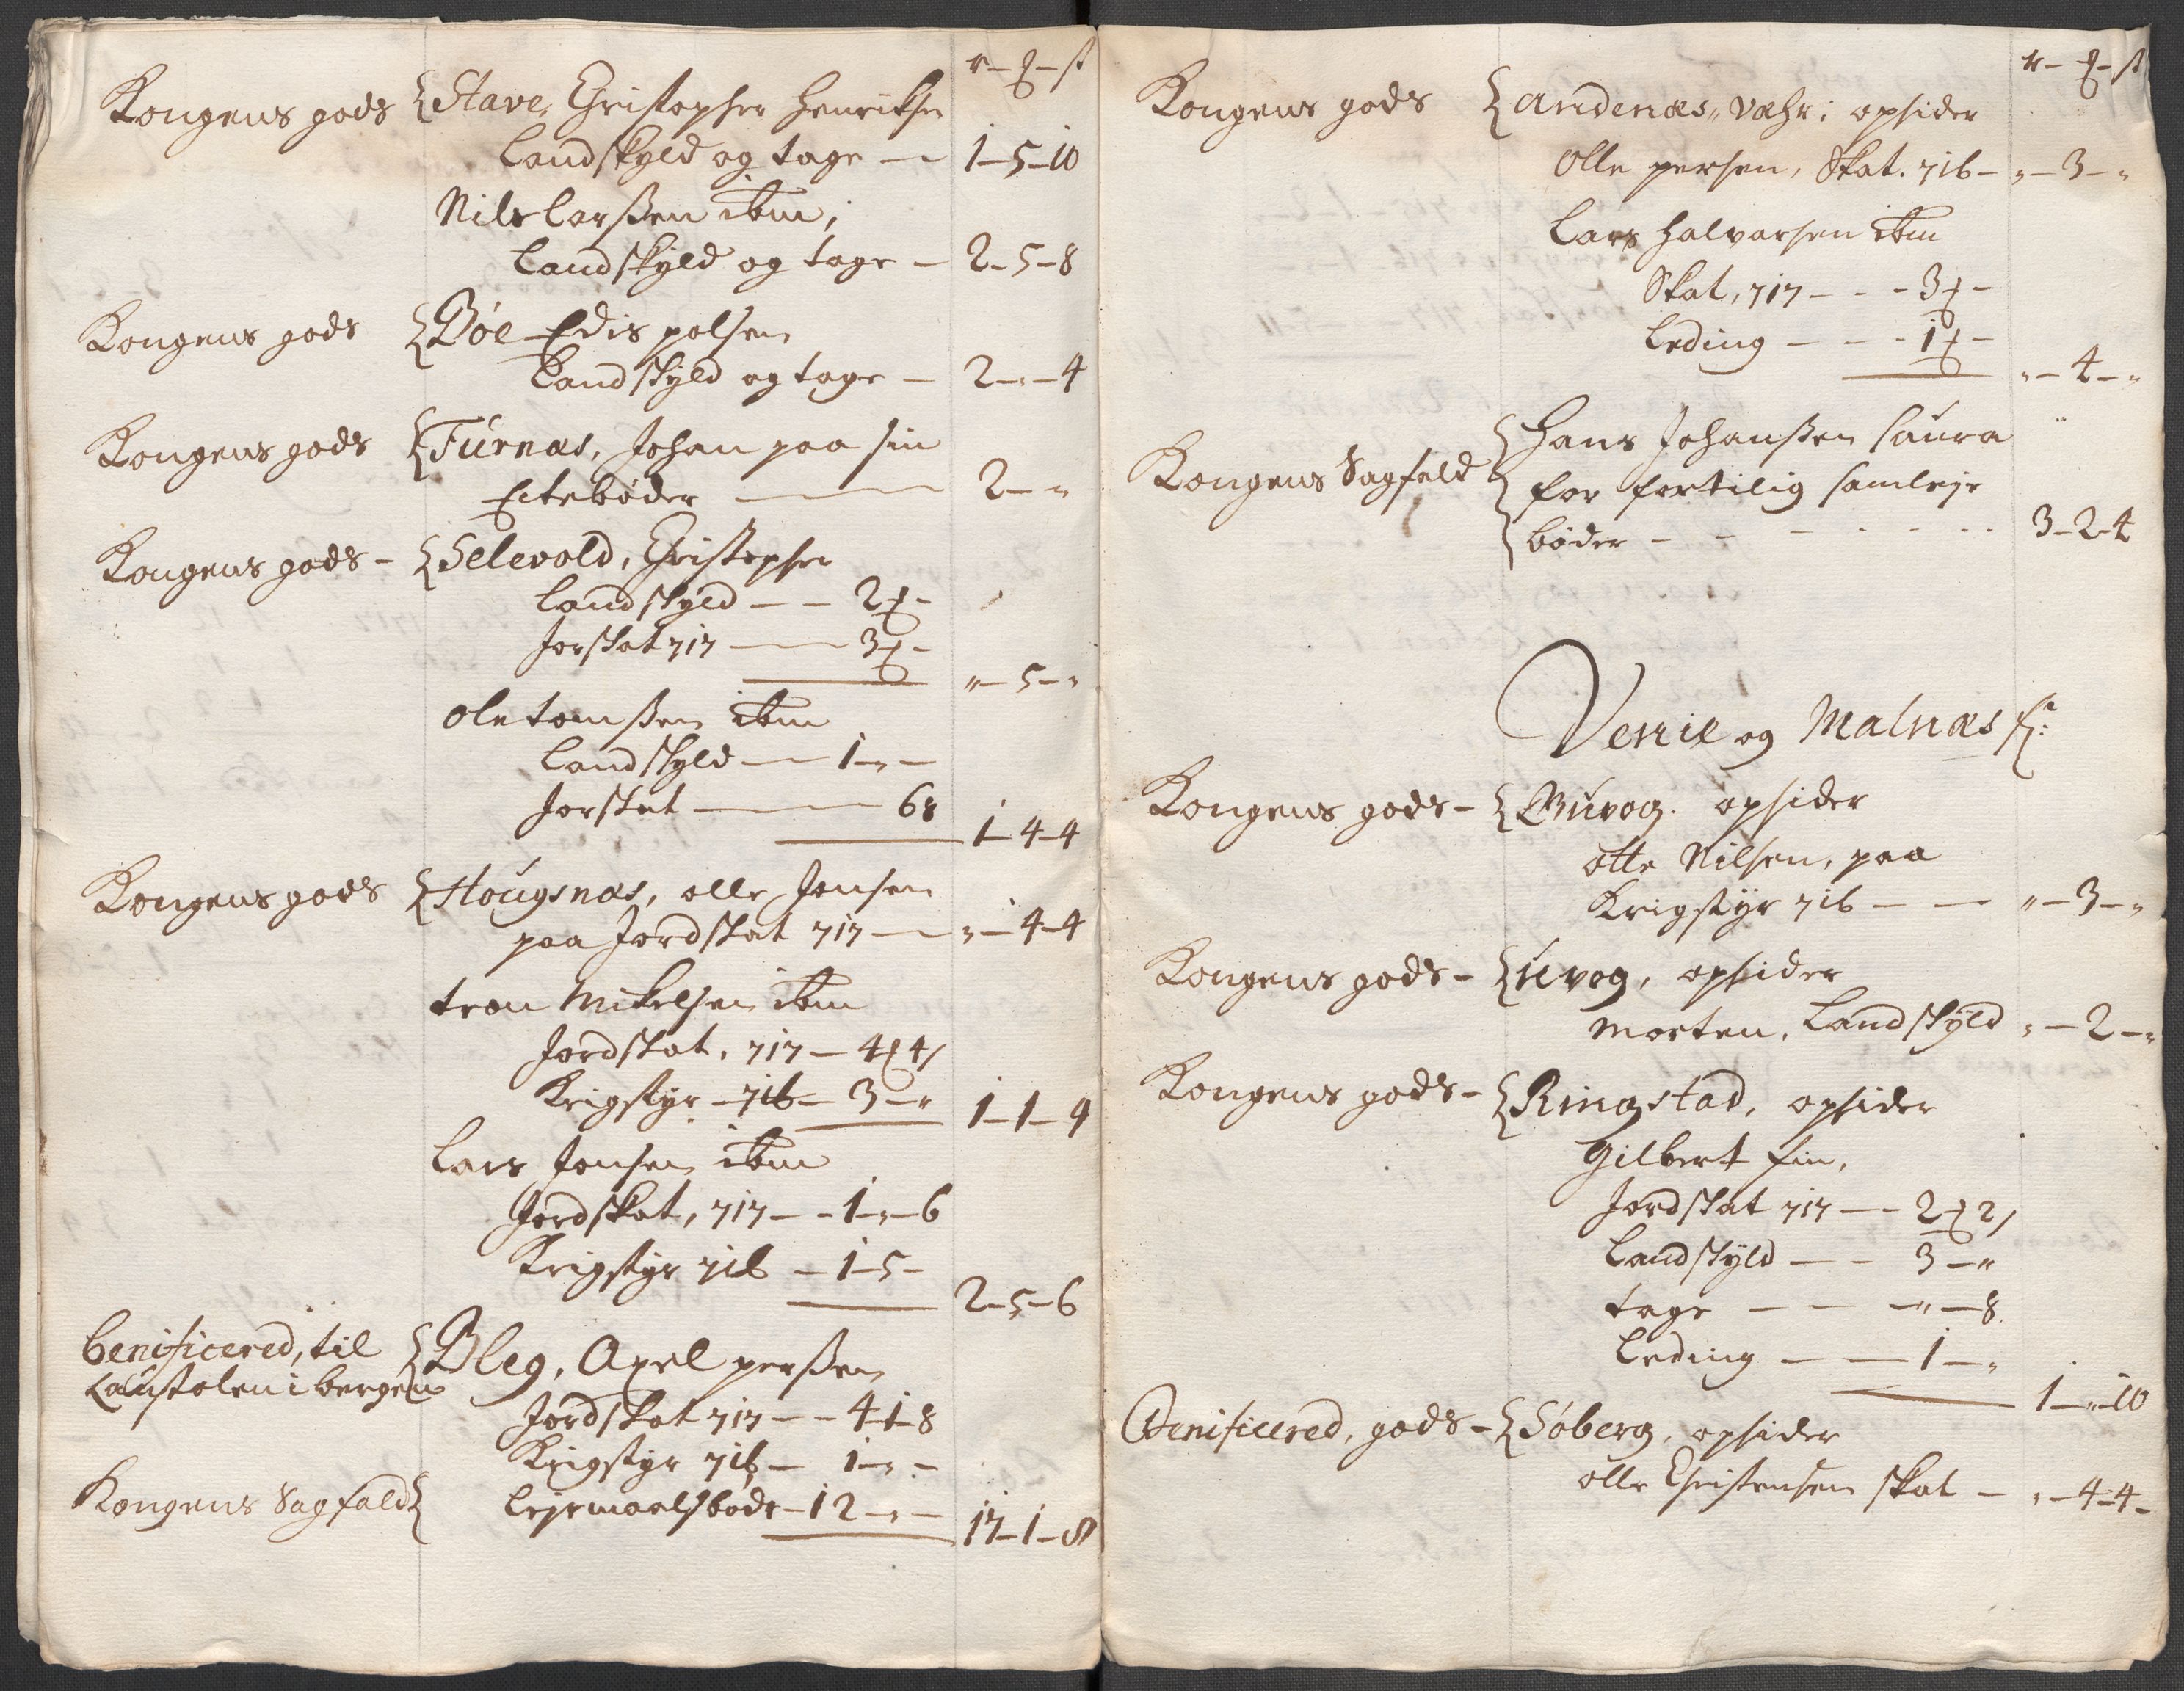 r – ℥ – ſt
Kongens gods { Stave, Christopher Henriksen
Landskyld og tage — 1–5–10
Nils larßen ibm;
Landskyld og tage – 2–5–8
Kongens gods { Böe Edis polsen
Landskyld og tage – 2–„–4
Kongens gods { Turnæs, Johan paa sin
Ectebøder — 2–„
Kongens gods – { Selevold, Christopher
Landskyld — 2 ℥ –
Jorskat 717 — 3 ℥ –
„–5–„
Ole tomßen ibm
Landskyld — 1–„–
Jorskat — 68
1–4–4
Kongens gods { Hougsnæs, olle Jonsen
paa Jordskat 717 — „–4–4
tron Mikelsen ibm
Jordskat, 717 – 4 ℥ 4 ſ
Krigstyr – 716 – 3–„
1–1–4
Lars Jonsen ibm
Jordskat, 717 – 1–„–6
Krigstyr 716 – 1–5–
2–5–6
benificered, til { Bleg, Axel perßen
Laustolen i bergen
Jordskat 717 – – 4–1–8
Krigstyr 716 – 1–„–
Kongens Sagfald { Lejermaalsbode – 12–„–
17–1–8
r – ℥ – ſt
Kongens gods { Andenæs„ væhr; opsider
Olle persen, Skat. 716 – „–3–„
Lars Halvarsen ibm
Skat, 717 – – – 3 ℥ –
Leding – – – 1 ℥ –
„–4–„
Kongens Sagfald { Hans Johanßen saura
for fortilig samleje
bøder – – – – – 3–2–4
Venie og Malnæs fl:
Kongens gods – { Buvog. opsider
otte Nilsen, paa
Krigstyr 716 – — „–3–„
Kongens gods – { uvog, opsider
Morten, Landskyld „–2–„
Kongens gods – { Ringstad, opsider
Gilbert fin,
Jordskat 717 — 2 ℥ 2 ſ
Landskyld — – 3–„
tage — — –„–8
Leding — — 1–„
1–„–10
Benificered, gods – { Söberg, opsider
olle Christensen skat – „–4–4–